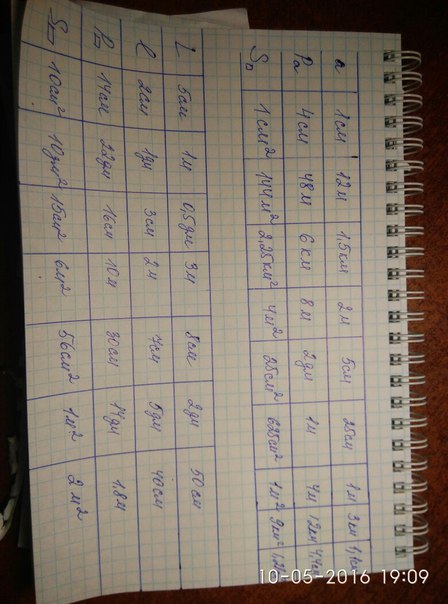 a 1см 12м 1,5км 2м 5см 25см 1м 3м 1,1м
P□ 4см 48м 6км 8м 2дм 1м 4м 12м 4,4м
S□ 1см² 144м² 2,25км² 4м² 25см² 625см² 1м² 9м² 1,21
L 5см 1м 0,5дм 3м 8см 2дм 50см
l 2см 1дм 3см 2м 7см 5дм 40см
P▭ 14см 22дм 16см 10м 30см 14дм 1,8м
S▭ 10см² 10дм² 15см² 6м² 56см² 1м² 2м²
10-05-2016 19:09